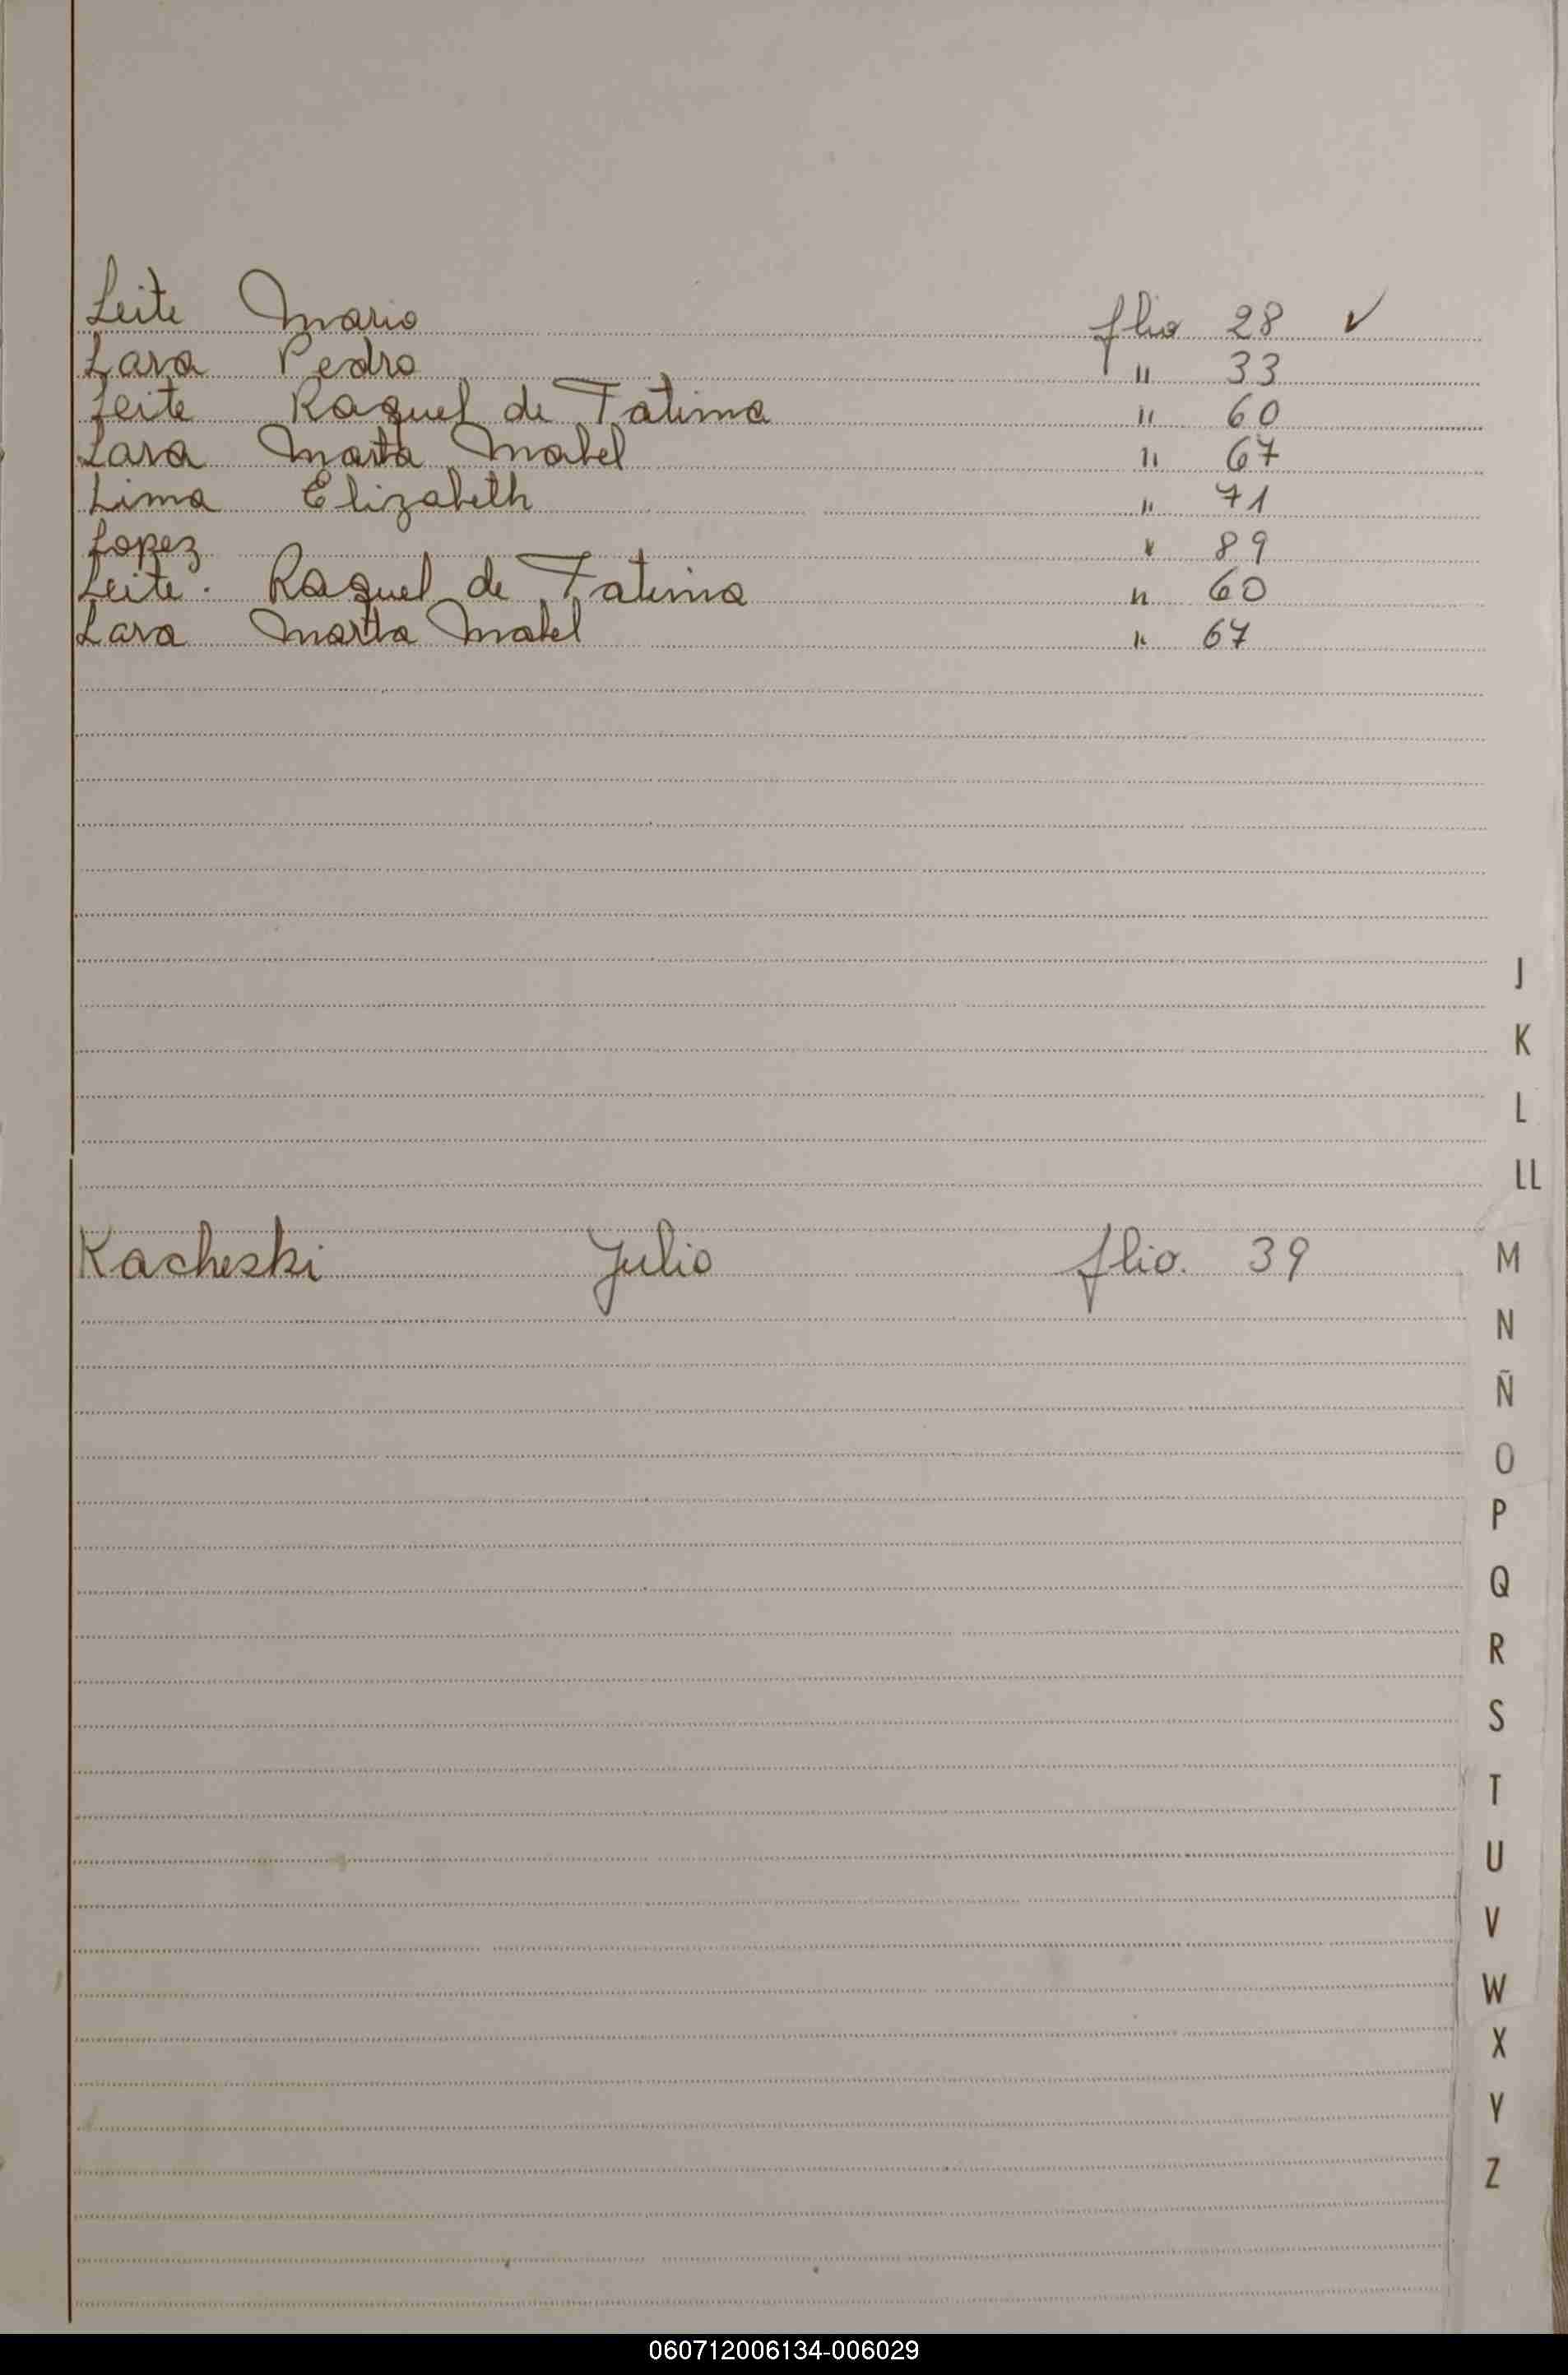 Leite Mario flio 28 ✓
Lara Pedro " 33
Leite Raquel de Fatima " 60
Lara Marta Mabel " 67
Lima Elizabeth " 71
Lopez " 89
Leite. Raquel de Fatima " 60
Lara Marta Mabel " 67
J
K
L
LL
Kacheski Julio flio. 39
M
N
Ñ
O
P
Q
R
S
T
U
V
W
X
Y
Z
060712006134-006029